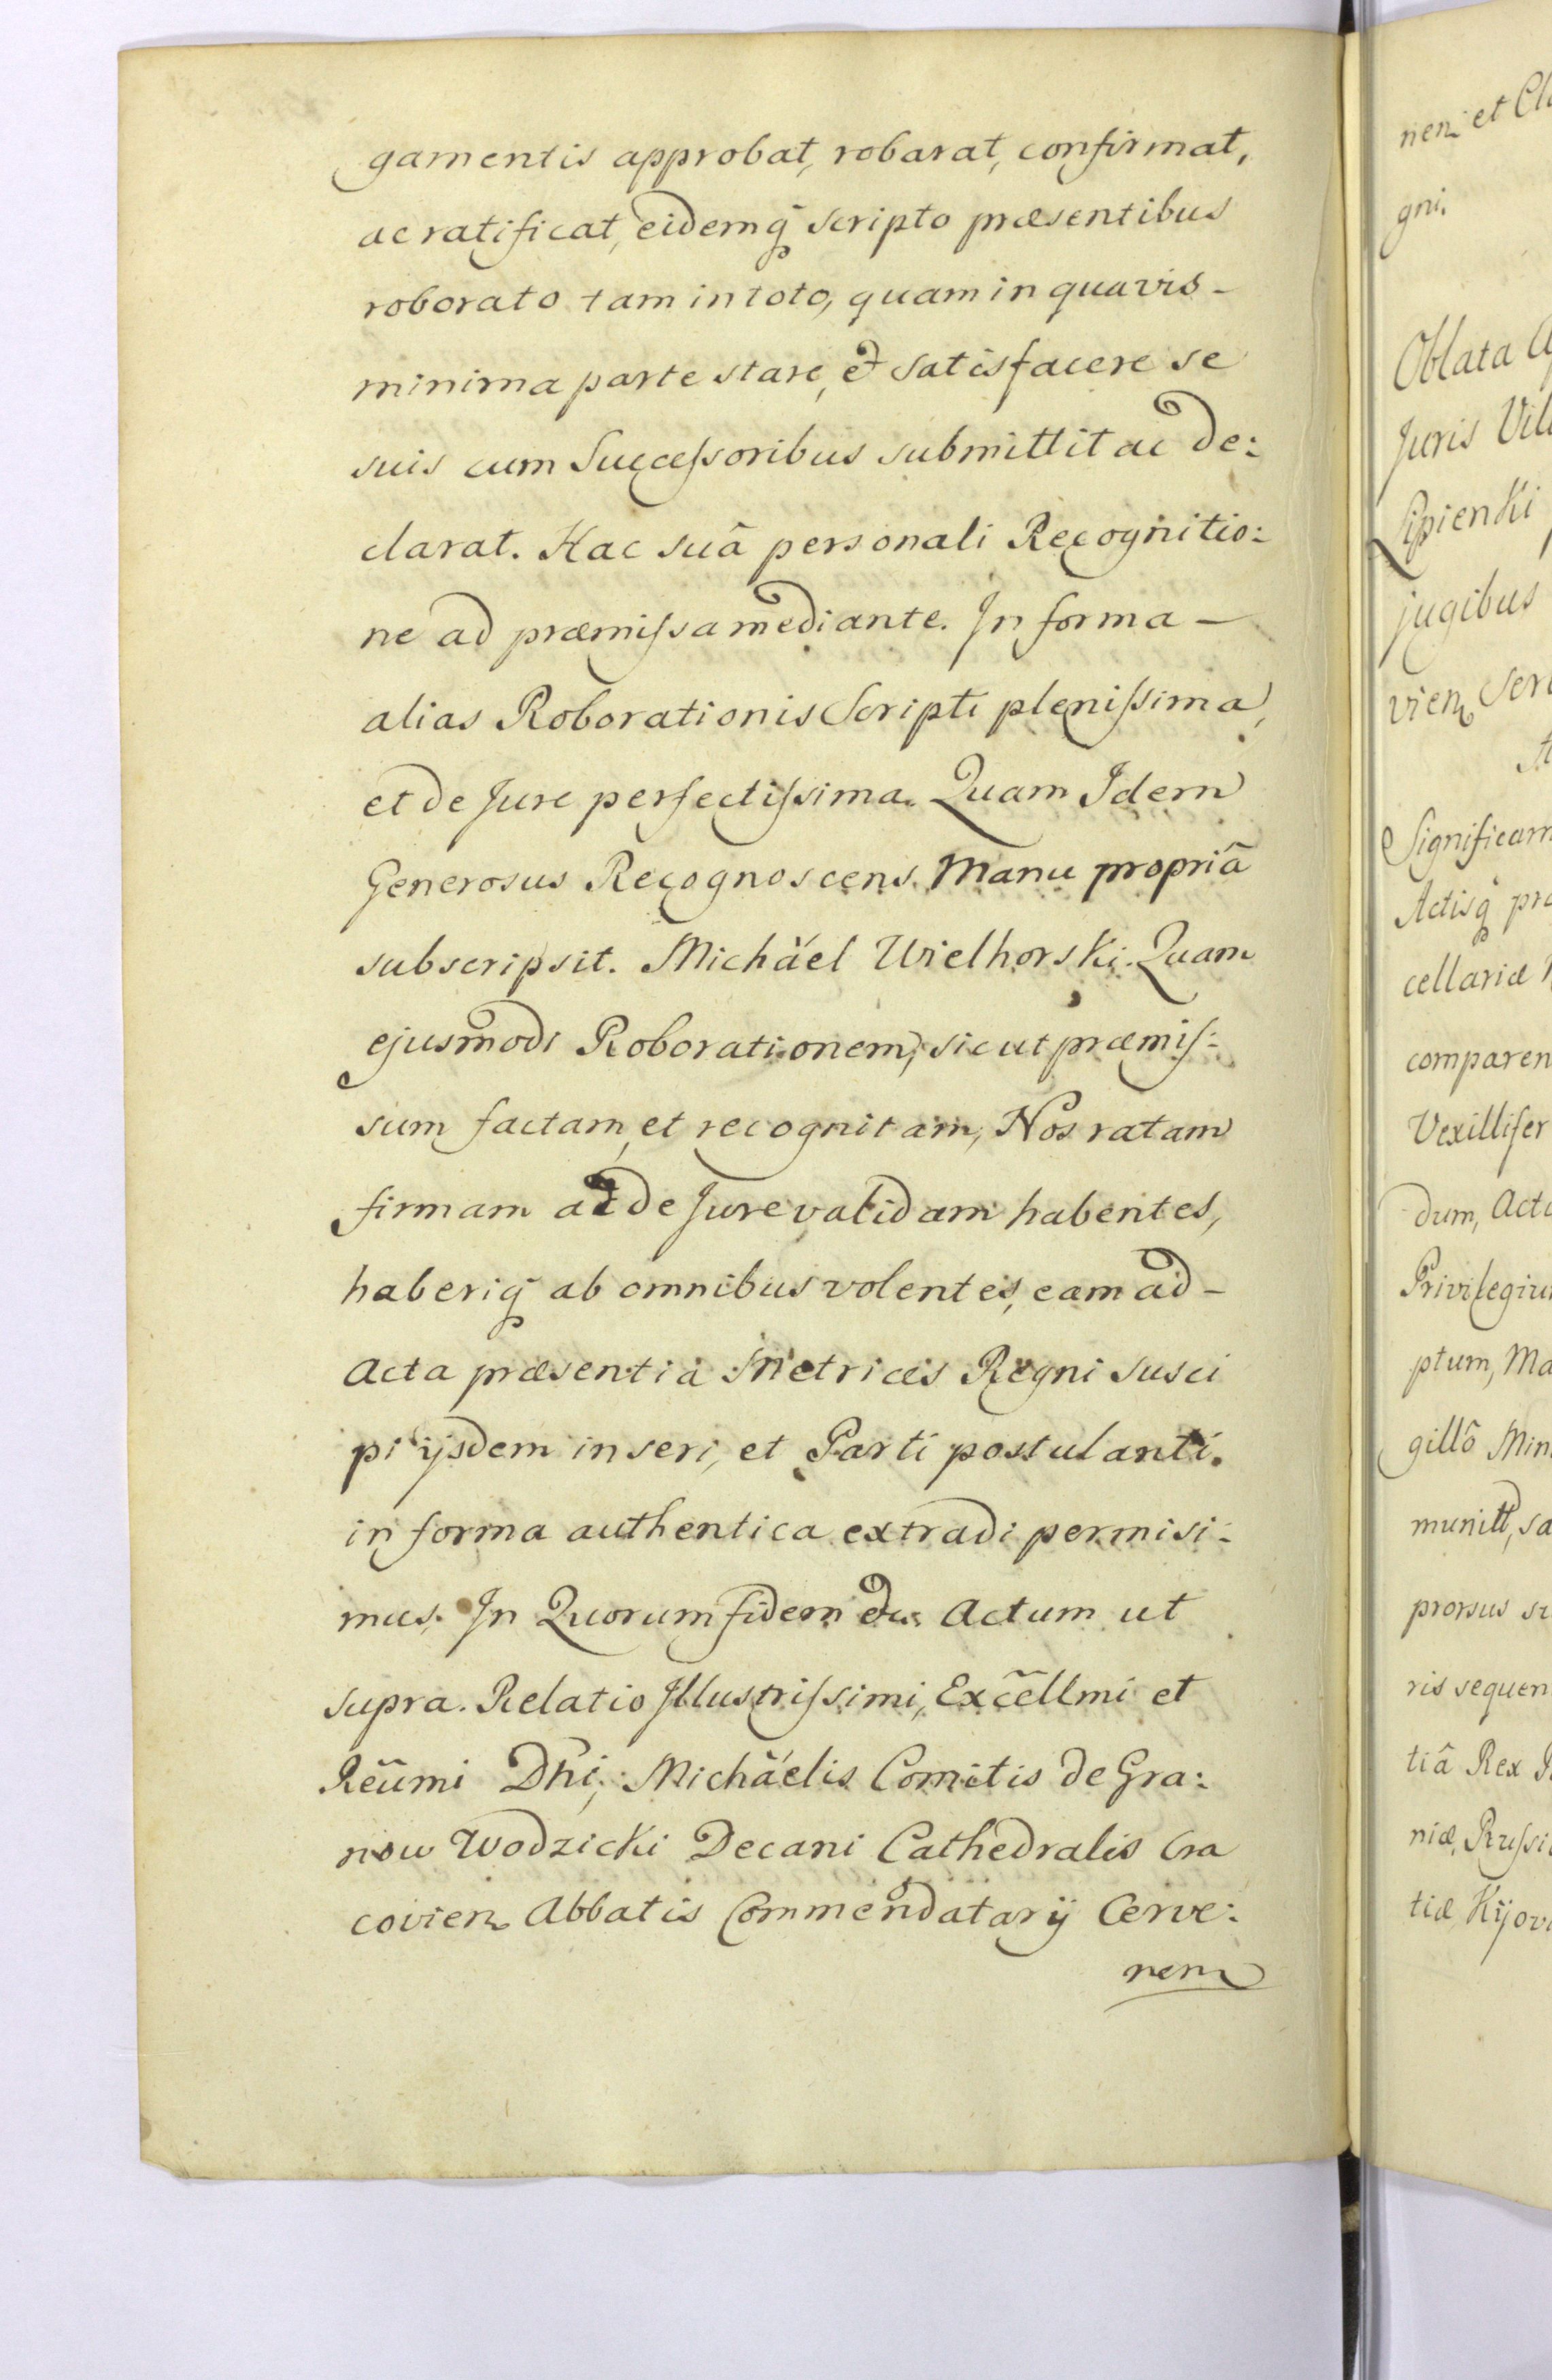 gamentis approbat, robarat, confirmat,
ac ratificat, eidemq̃ scripto præsentibus
roborato tam in toto, quam in quavis -
minima parte stare, et satisfacere se
suis cum Succeſsoribus submittit ac de:
clarat. Hac suâ personali Recognitio:
ne ad præmiſsa mediante. In forma -
alias Roborationis Scripti pleniſsima,
et de Jure perfectiſsima. Quam Idem
Generosus Recognoscens. Manu propriâ
subscripsit. Michäel Wielhorski. Quam
ejusmodi Roborationem, sicut præmiſ:
sum factam, et recognitam, Nos ratam
firmam ac de Jure validam habentes,
haberiq̃ ab omnibus volentes, eam ad -
Acta præsentia Metrices Regni susci
pi ijsdem inseri, et Parti postulanti.
in forma authentica extradi permisi:
mus. In Quorum fidem etc. Actum ut
supra. Relatio Jllustriſsimi, Excẽllmi et
Reũmi Dñi, Michäelis Comitis de Gra:
now Wodzicki Decani Cathedralis Cra
covien Abbatis Commendatarij Cerve:
nen
nen: et
gni.
Oblata
Juris
Lipienki
jugibus
vien
Significam
Actisq̃
cellariæ
comparen
Vexillifer
dum, Acti
Privilegiu
ptum, Ma
gillô Min
munitt, sa
prorsus
ris sequen
tiâ Rex
niæ, Ruſsi
tiæ, Kijov